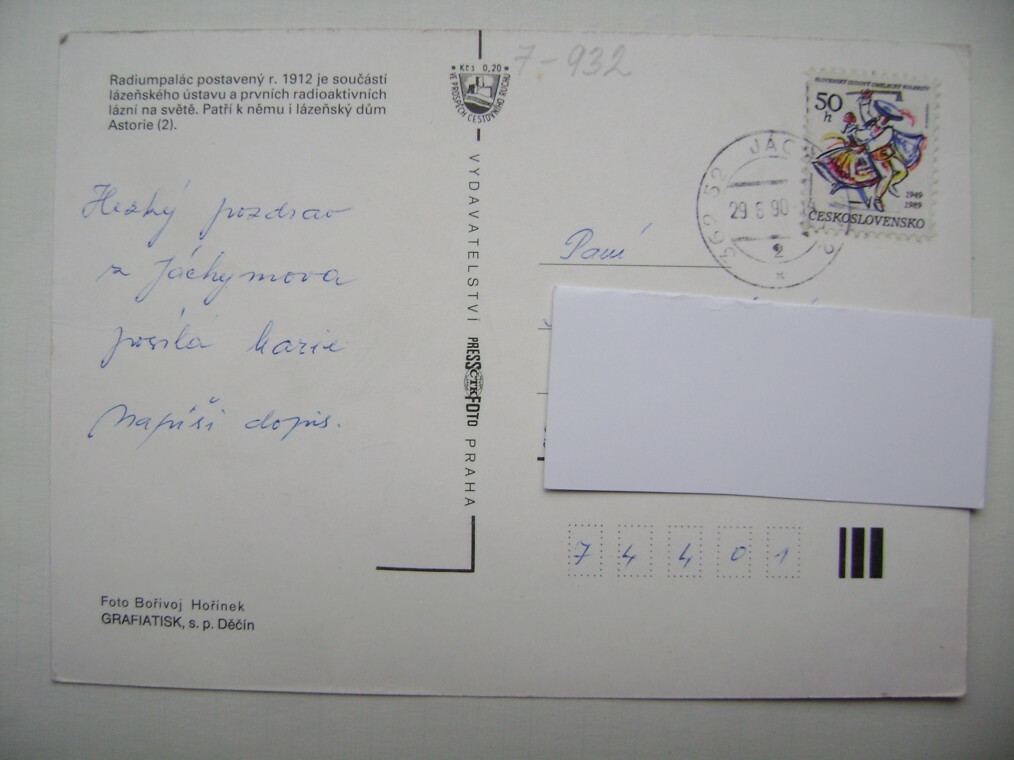 Radiumpalác postavený r. 1912 je součástí
lázeňského ústavu a prvních radioaktivních
lázní na světě. Patří k němu i lázeňský dům
Astorie (2).
Hezký pozdrav
z Jáchymova
posílá Marie
Napíši dopis.
Foto Bořivoj Hořínek
GRAFIATISK, s. p. Děčín
Kčs 0,20
VE PROSPĚCH CESTOVNÍHO RUCHU
VYDAVATELSTVÍ PRESSFOTO PRAHA
ČTK
7-932
50
h
1949
1989
ČESKOSLOVENSKO
362 52 JÁC
29.6.90
2
Paní
74401